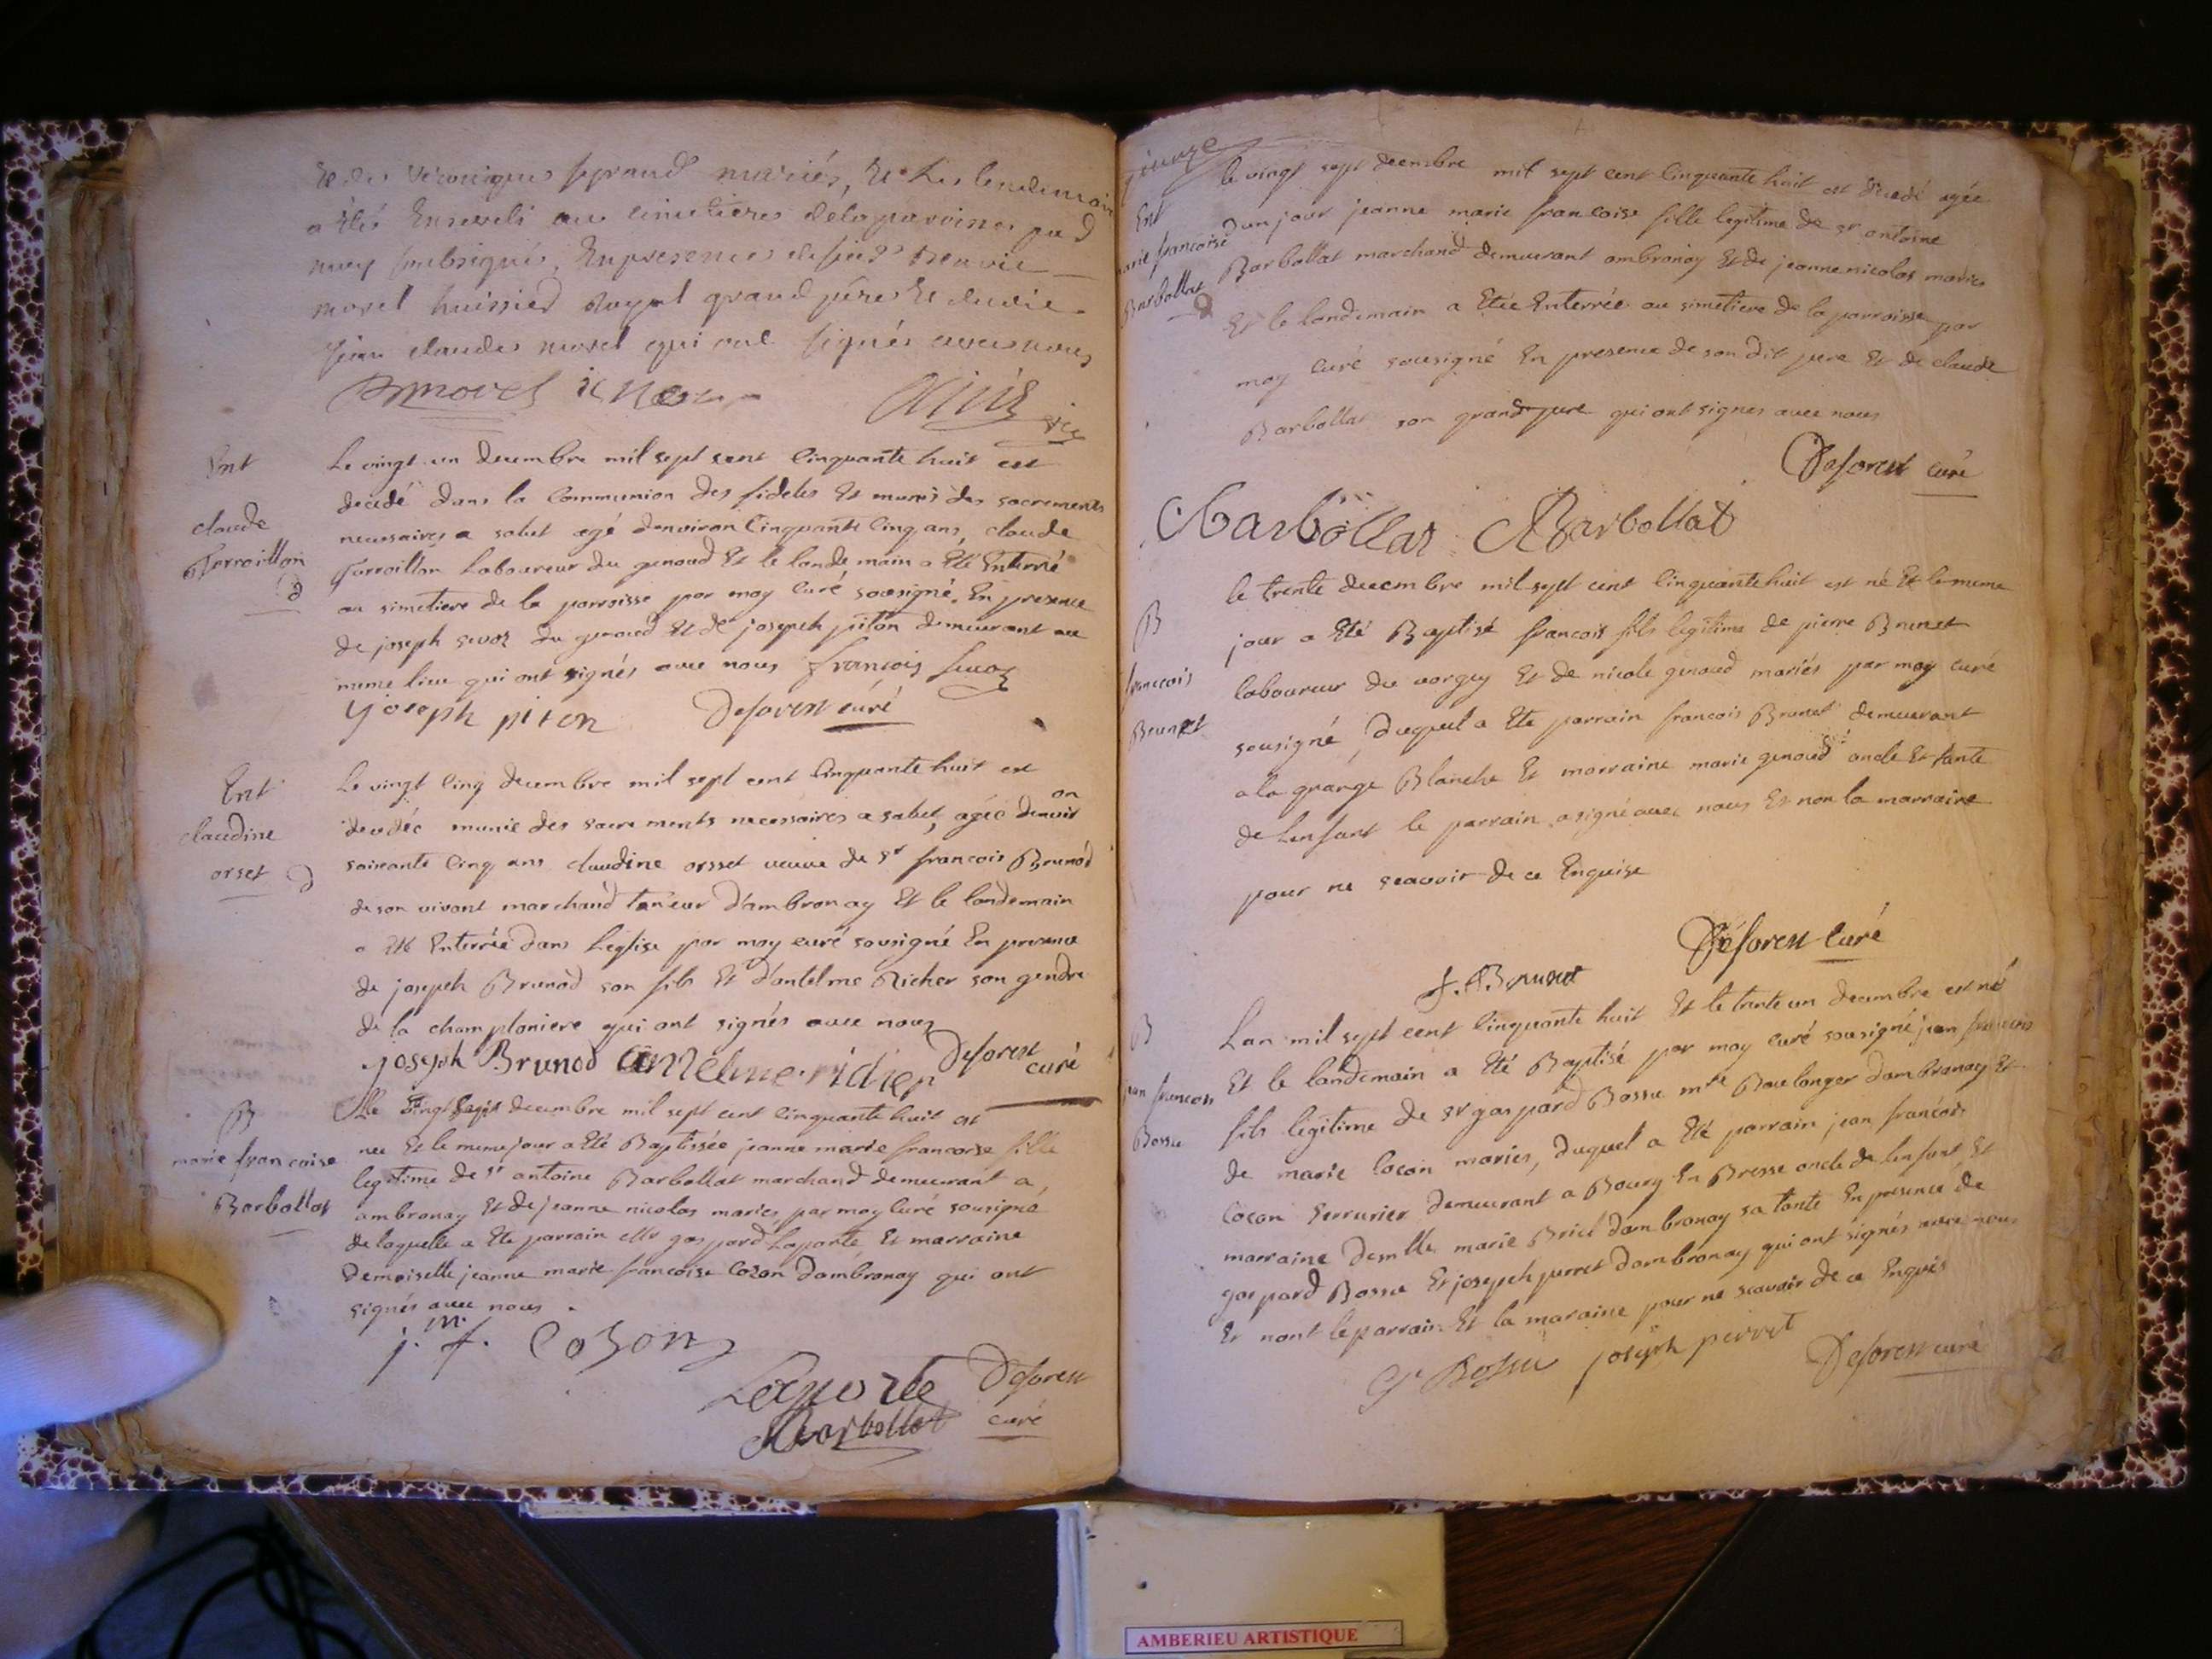 mariés, Et le lendemain
a Eté Enseveli au cimetiere de la paroisse par
moy soubsigné, En presence de
morel huissier Royal grand père Et de
Jean claude morel qui ont signés avec nous
Ent
claude
ferroillon
d
Le vingt un decembre mil sept cent Cinquante huit est
decédé dans la Communion des fideles Et munis des sacrements
necessaires a salut agé denviron Cinquante Cinq ans, claude
ferroillon Laboureur du genoud Et le lande main a Eté Enterré
au simetiere de la parroisse par moy Curé sousigné. En presence
de joseph sevoz du genoud Et de joseph piton demeurant au
meme lieu qui ont signés avec nous françois sevoz
Joseph piton Deforest curé
Ent
claudine
orset d
Le vingt Cinq decembre mil sept cent Cinquante huit est
decedée munie des sacrements necessaires a salut, agée denviron
soixante Cinq ans claudine orsset veuve de sr francois Brunod
de son vivant marchand taneur d'ambronay Et le landemain
a Eté Enterrée dans Leglise par moy curé sousigné En presence
de joseph Brunod son fils Et d'antelme Richer son gendre
de la champloniere qui ont signés avec nous
joseph Brunod antelme richer Deforest
curé
B
marie francoise
Barbollat
Le vingt sept decembre mil sept cent cinquante huit est
nee Et le meme jour a Eté Baptissée jeanne marie francoise fille
legitime de sr antoine Barbollat marchand demeurant a
ambronay Et de jeanne nicolas mariés par moy Curé sousigné
de laquelle a Eté parrain gaspard Laporte Et marraine
Demoiselle jeanne marie francoise Cozon Dambronay qui ont
signés avec nous.
j. m. f. Cozon
Laporte Deforest
Barbollat curé
Ent
marie francoise
Barbollat
d
le vingt sept decembre mil sept cent Cinquante huit est decedé agée
dun jour jeanne marie francoise fille legitime de sr antoine
Barbollat marchand demeurant ambronay Et de jeanne nicolas mariés
Et le landemain a Etée Enterrée au simetiere de la parroisse par
moy Curé sousigné En presence de son dit pere Et de claude
Barbollat son grand-pere qui ont signes avec nous
Deforest curé
Barbollat Barbollat
B
francois
Brunet
le trente decembre mil sept cent Cinquante huit est né Et le meme
jour a Eté Baptisé francois fils legitime de pierre Brunet
laboureur du vorgey Et de nicole genoud mariés par moy curé
sousigné, Duquel a Eté parrain francois Brunet demeurant
a la grange Blanche Et marraine marie genoud oncle Et tante
de Lenfant le parrain a signé avec nous Et non la marraine
pour ne scavoir de ce Enquise
Deforest Curé
f. Brunet
B
jean francois
Bossu
Lan mil sept cent Cinquante huit Et le trante un decembre est né
Et le landemain a Eté Baptisé par moy curé sousigné jean francois
fils legitime de sr gaspard Bossu mtre Boulanger dambronay Et
de marie Cocon mariés, Duquel a Eté parrain jean francois
Cocon serrurier demeurant a Bourg En Bresse oncle de Lenfant Et
marraine Demlle marie Briel dambronay sa tante En presence de
gaspard Bossu Et joseph perret dambronay qui ont signés avec nous
Et nont le parrain Et la maraine pour ne scavoir de ce Enquis
G. Bossu joseph perret Deforest curé
AMBERIEU ARTISTIQUE